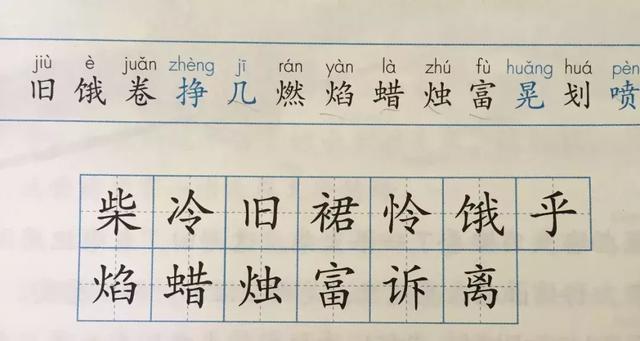 jiù è juǎn zhèng jī rán yàn là zhú fù huǎng huá pèn
旧 饿 卷 挣 几 燃 焰 蜡 烛 富 晃 划 喷
柴 冷 旧 裙 怜 饿 乎
焰 蜡 烛 富 诉 离